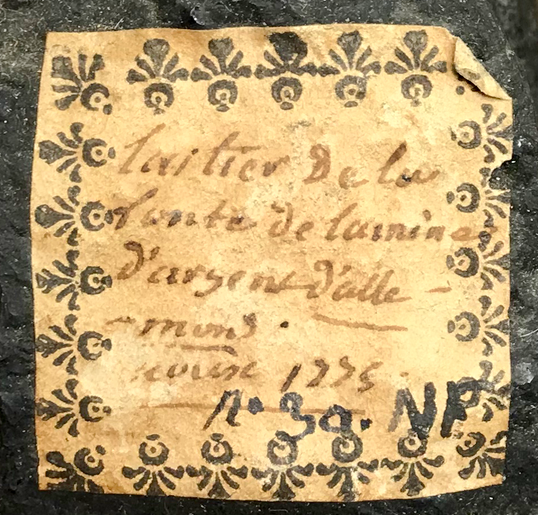 laitier de la
fonte de la mine
d'argent d'alle-
-mont.
1775
n° 30. NP